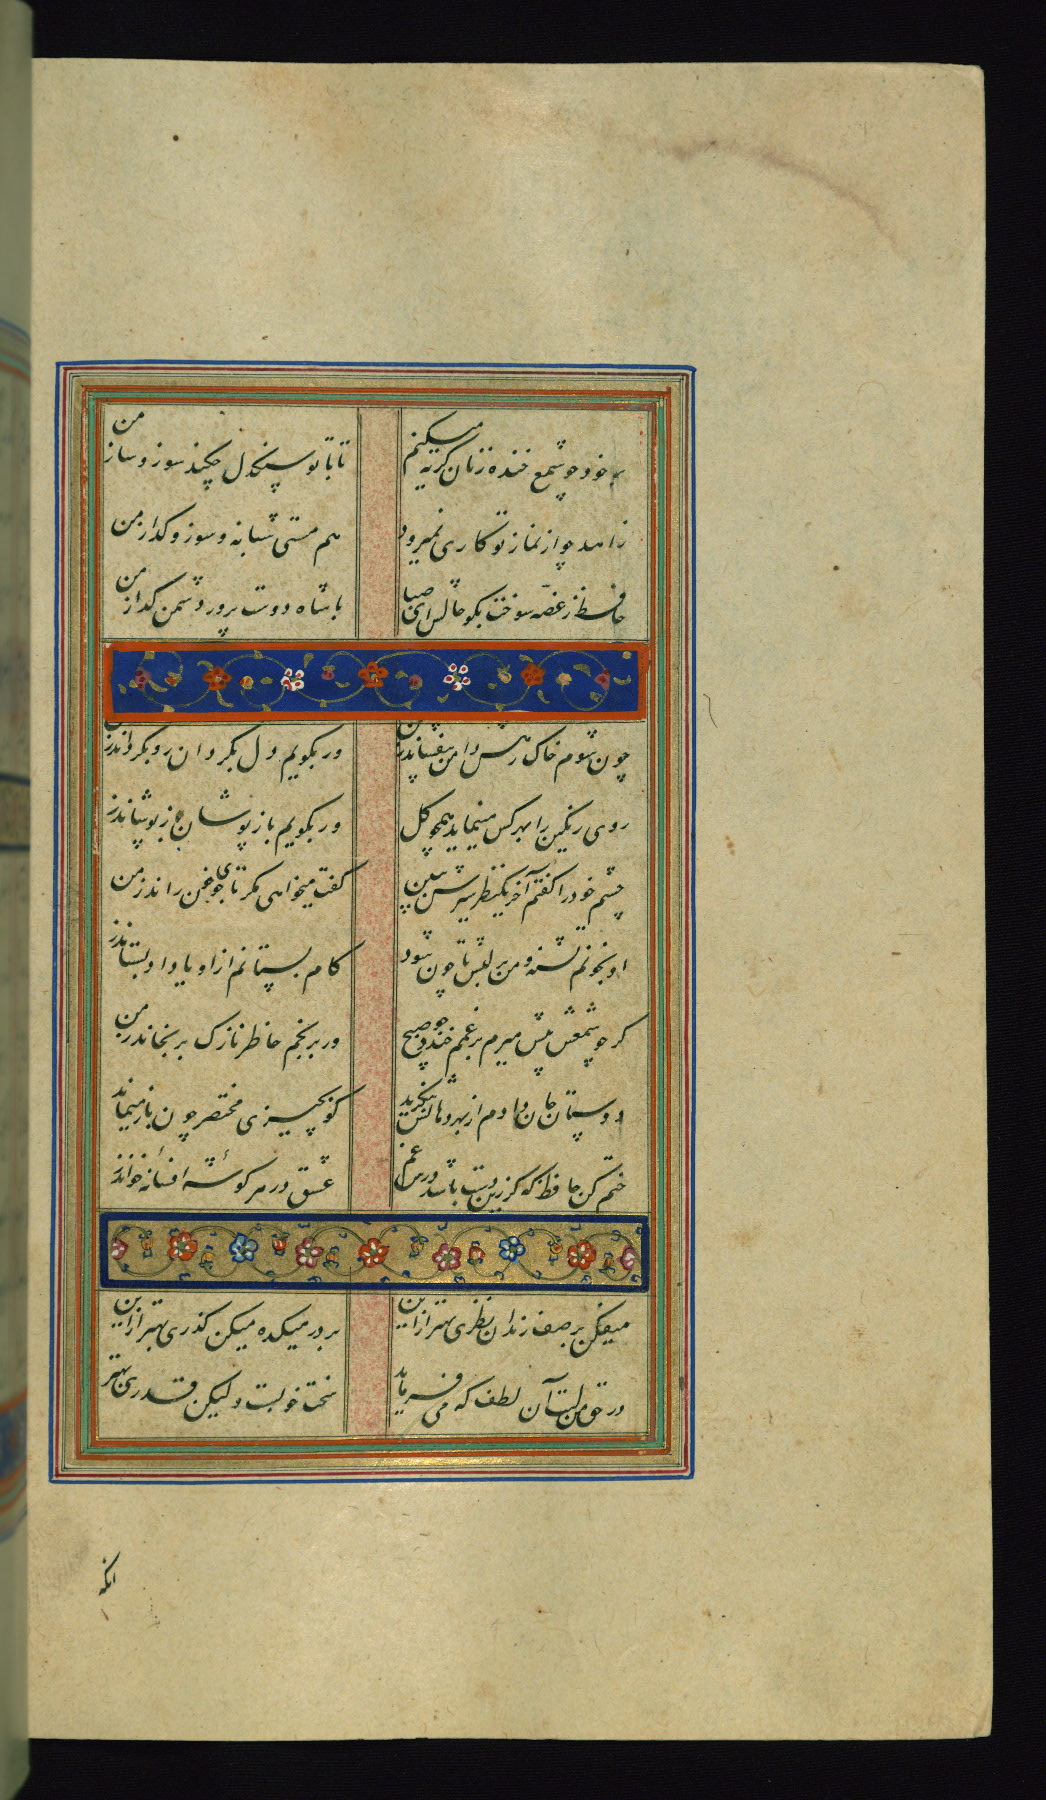 بر خود چو شمع خنده زنان گریه میکنم تا با تو سنگدل چکند سوز و ساز من
زاهد چو از نماز تو کاری نمیرود هم مستی شبانه و سوز و گداز من
حافظ ز غصه سوخت بگو حالش ای صبا با شاه دوست پرور دشمن گداز من
چون شوم خاک رهش دامن بیفشاند ز من ور بگویم دل بگردان رو بگرداند ز من
روی رنگین را بهر کس مینماید همچو گل ور بگویم باز پوشان باز پوشاند ز من
چشم خود را گفتم آخر یکنظر سیرش ببین گفت میخواهی مگر تا جوی خون راند ز من
او بخونم تشنه و من بر لبش تا چون شود کام بستانم از او یا داد بستاند ز من
گر چو شمعش پیش میرم بر غمم خندد چو صبح ور برنجم خاطر نازک برنجاند ز من
دوستان جان داده‌ام از بهر دهانش بنگرید کو بچیزی مختصر چون باز میماند
ختم کن حافظ که گر زین دست باشد درس غم عشق در هر گوشه افسانه خواند ز من
میفکن بر صف رندان نظری بهتر از این بر در میکده میکن گذری بهتر از این
در حق من لبت آن لطف که می فرماید سخت خوبست ولیکن قدری بهتر
انکه